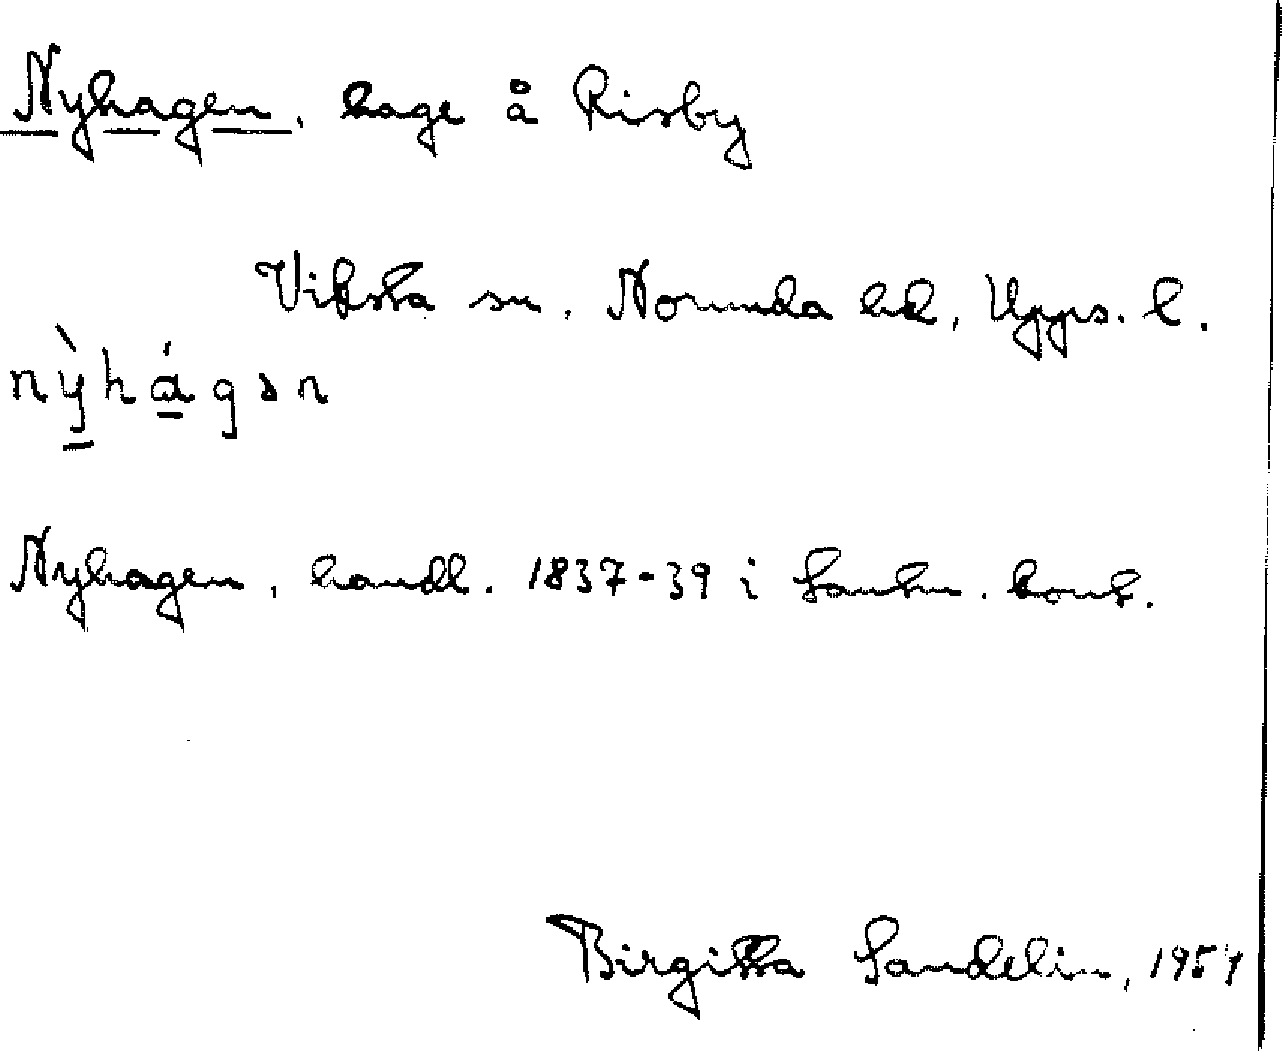 Nyhagen, hage å Risby
Viksta sn, Norunda hd, Upps. l.
nỳhágən
Nyhagen, handl. 1837-39 i Lantm. kont.
Birgitta Sandelin, 195